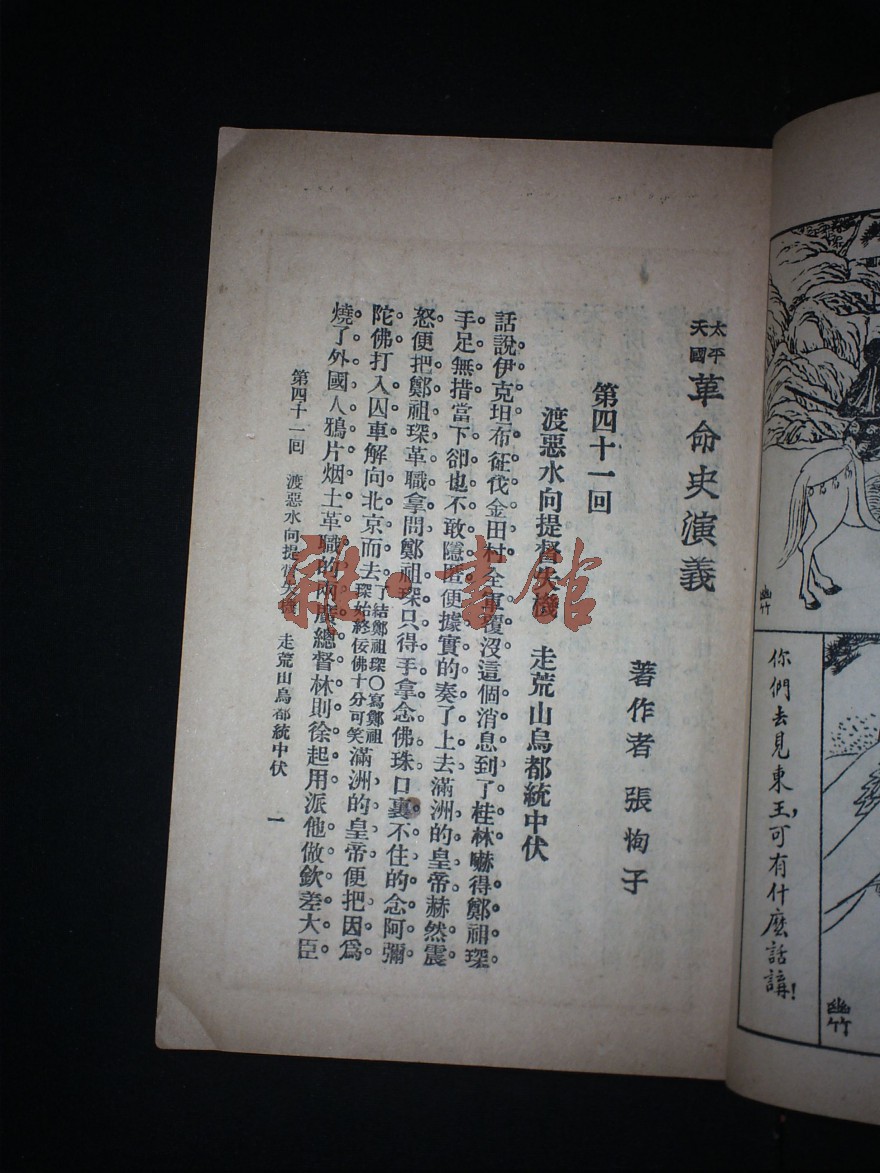 太平天國革命史演義
著作者 張恂子
第四十一回
渡惡水向提督失機 走荒山烏都統中伏
話說伊克坦布征伐金田村全軍覆沒這個消息到了桂林嚇得鄭祖琛
手足無措當下卻也不敢隱匿便據實的奏了上去滿洲的皇帝赫然震
怒便把鄭祖琛革職拿問鄭祖琛只得手拿念佛珠口裏不住的念阿彌
陀佛打入囚車解向北京而去了結鄭祖琛〇寫鄭祖琛始終佞佛十分可笑滿洲的皇帝便把因爲
燒了外國人鴉片烟土革職的兩廣總督林則徐起用派他做欽差大臣
第四十一回 渡惡水向提督失機 走荒山烏都統中伏 一
幽竹
你們去見東王,可有什麽話講!
幽竹
雜·書館